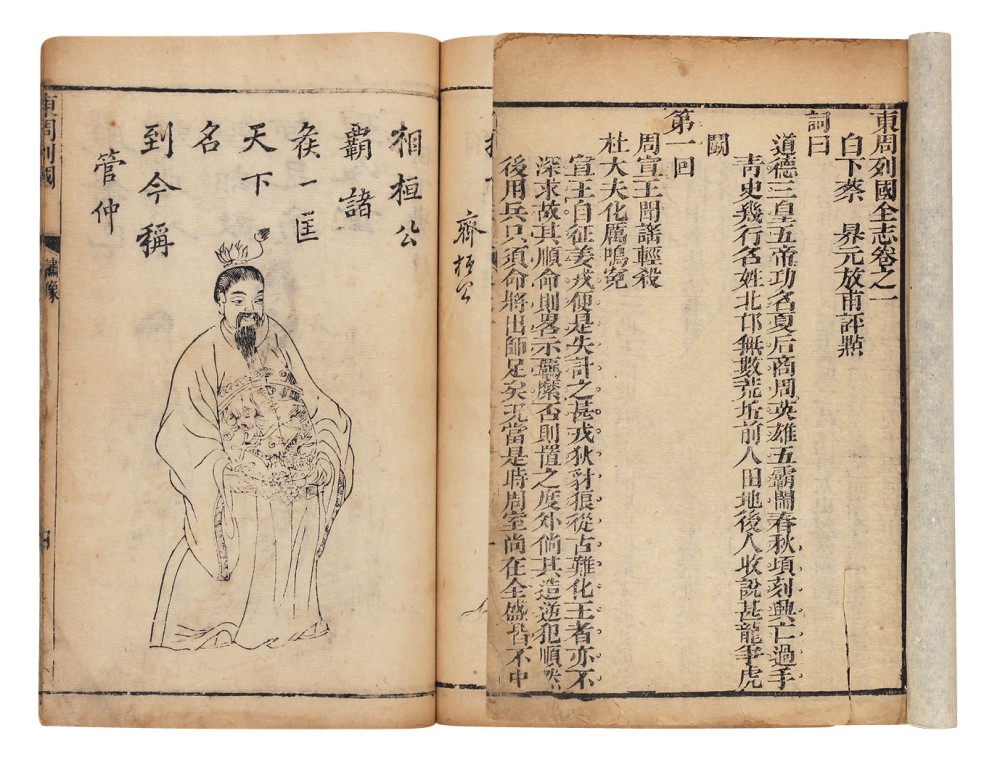 東周列國全志卷之一
白下蔡 昇元放甫評點
詞曰
道德三皇五帝功名夏后商周英雄五霸鬧春秋頃刻興亡過手
靑史幾行名姓北邙無數荒坵前人田地後人收說甚龍爭虎
鬭
第一回
周宣王聞謠輕殺
杜大夫化厲鳴寃
宣王自征姜戎便是失計之甚戎狄豺狼從古難化王者亦不
深求故其順命則畧示羈縻否則置之度外倘其造逆犯順
後用兵只須命將出師足矣况當是時周室尚在全盛皆不中
齊桓公
相桓公
霸諸
矦一匡
天下
名
到今稱
管仲
東周列國
繡像